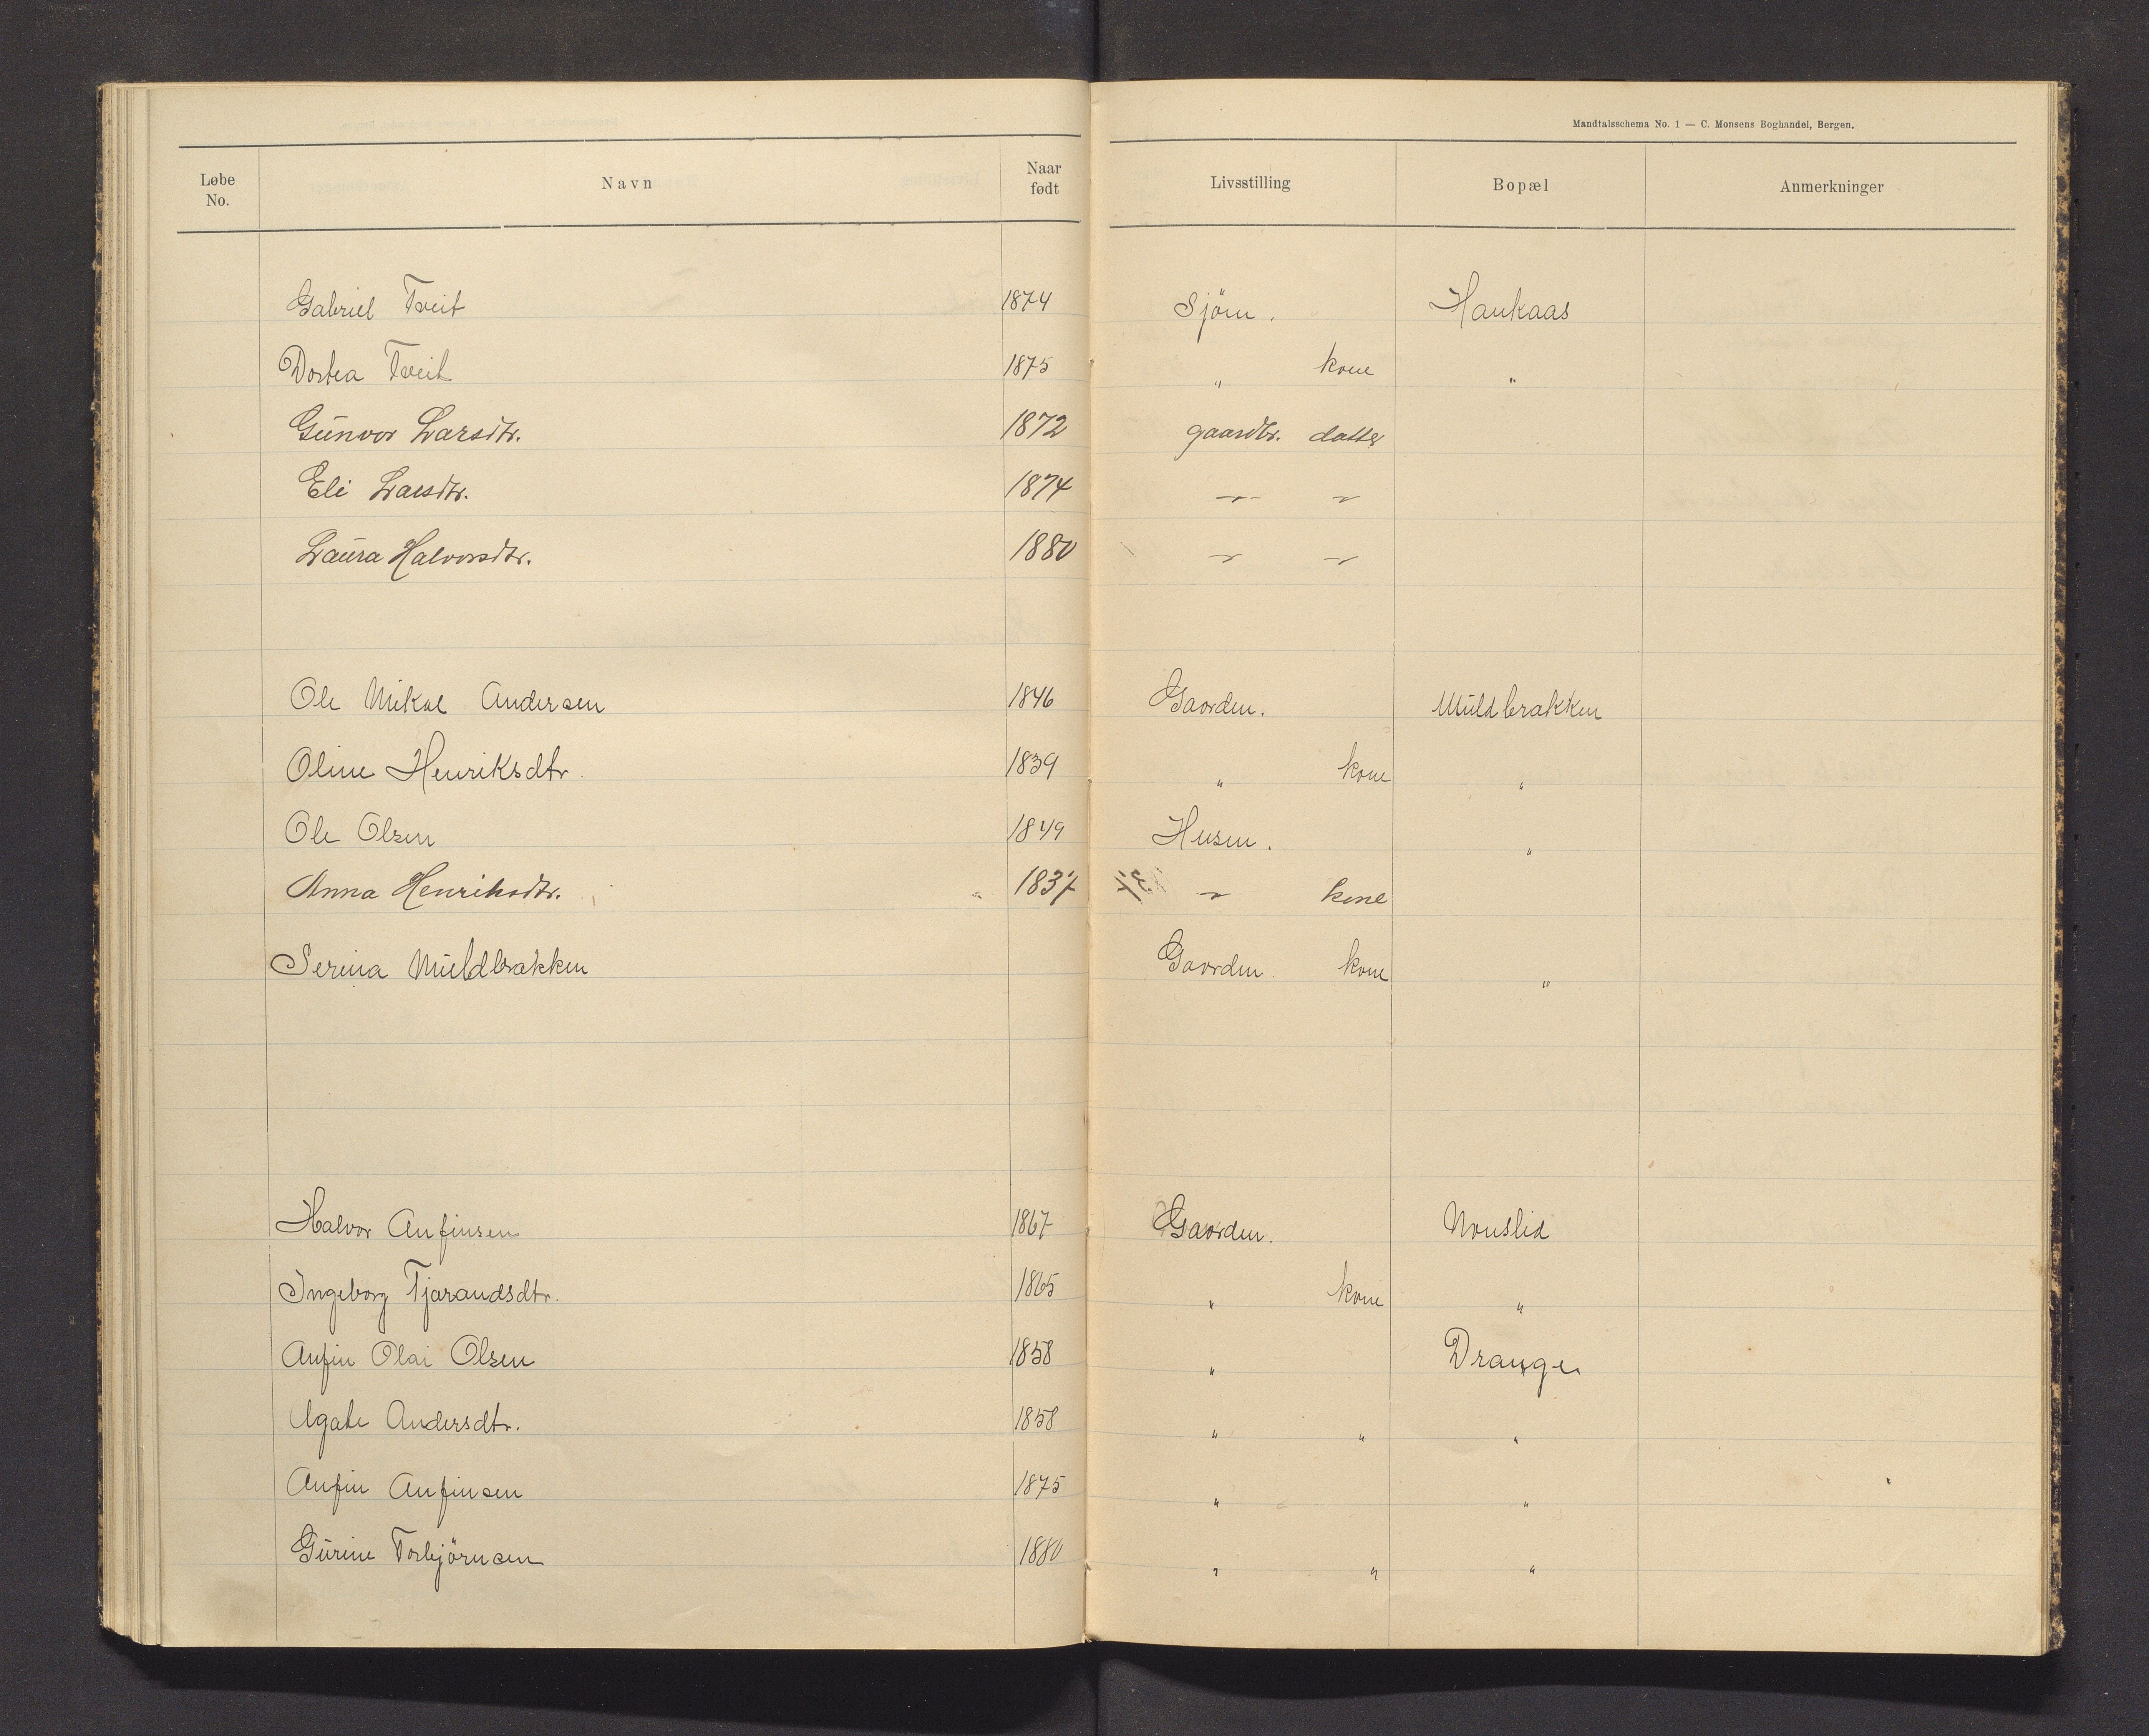 Mandtalsschema No. 1 — C. Monsens Boghandel, Bergen.
Løbe No. Navn Naar født Livsstilling Bopæl Anmerkninger
Gabriel Tveit 1874 Sjöm. Haukaas
Dortea Tveit 1875 " kone "
Gŭnvor Larsdtr. 1872 gaardbr. datter
Eli Larsdtr. 1874 — " — "
Laŭra Halvorsdtr. 1880 " "
Ole Mikal Andersen 1846 Gaarden. Mŭldbrakken
Oline Henriksdtr. 1839 " kone "
Ole Olsen 1849 Husm. "
Anna Henriksdtr. 1837 " kone
Serina Mŭldbrakken Gaarden. kone "
Halvor Anfinsen 1867 Gaarden. Nonslid
Ingeborg Tjarandsdtr. 1865 " kone "
Anfin Olai Olsen 1858 " Drange
Agate Andersdtr. 1858 " " "
Anfin Anfinsen 1875 " "
Gŭrine Torbjörnsen 1880 " " "